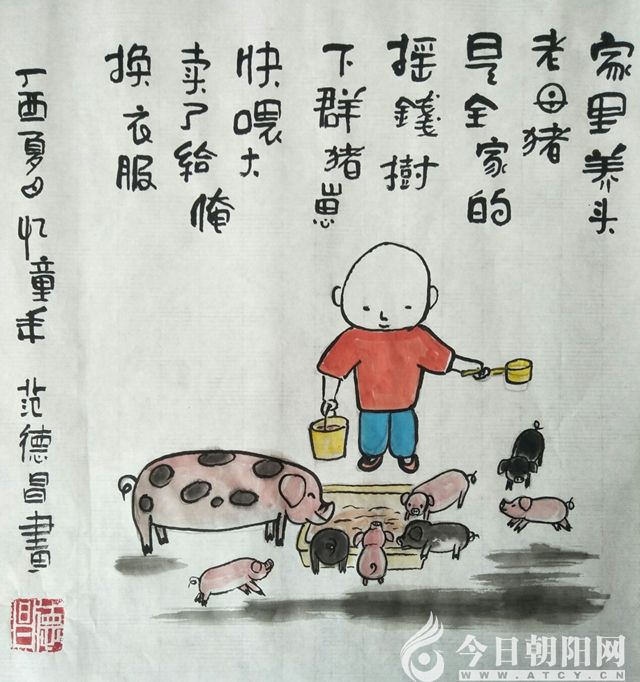 家里养头
老母猪
是全家的
摇錢樹
下群猪崽
快喂大
卖了给俺
换衣服
丁酉夏日忆童年 范德昌畫
德昌
今日朝阳网
WWW.ATCY.CN